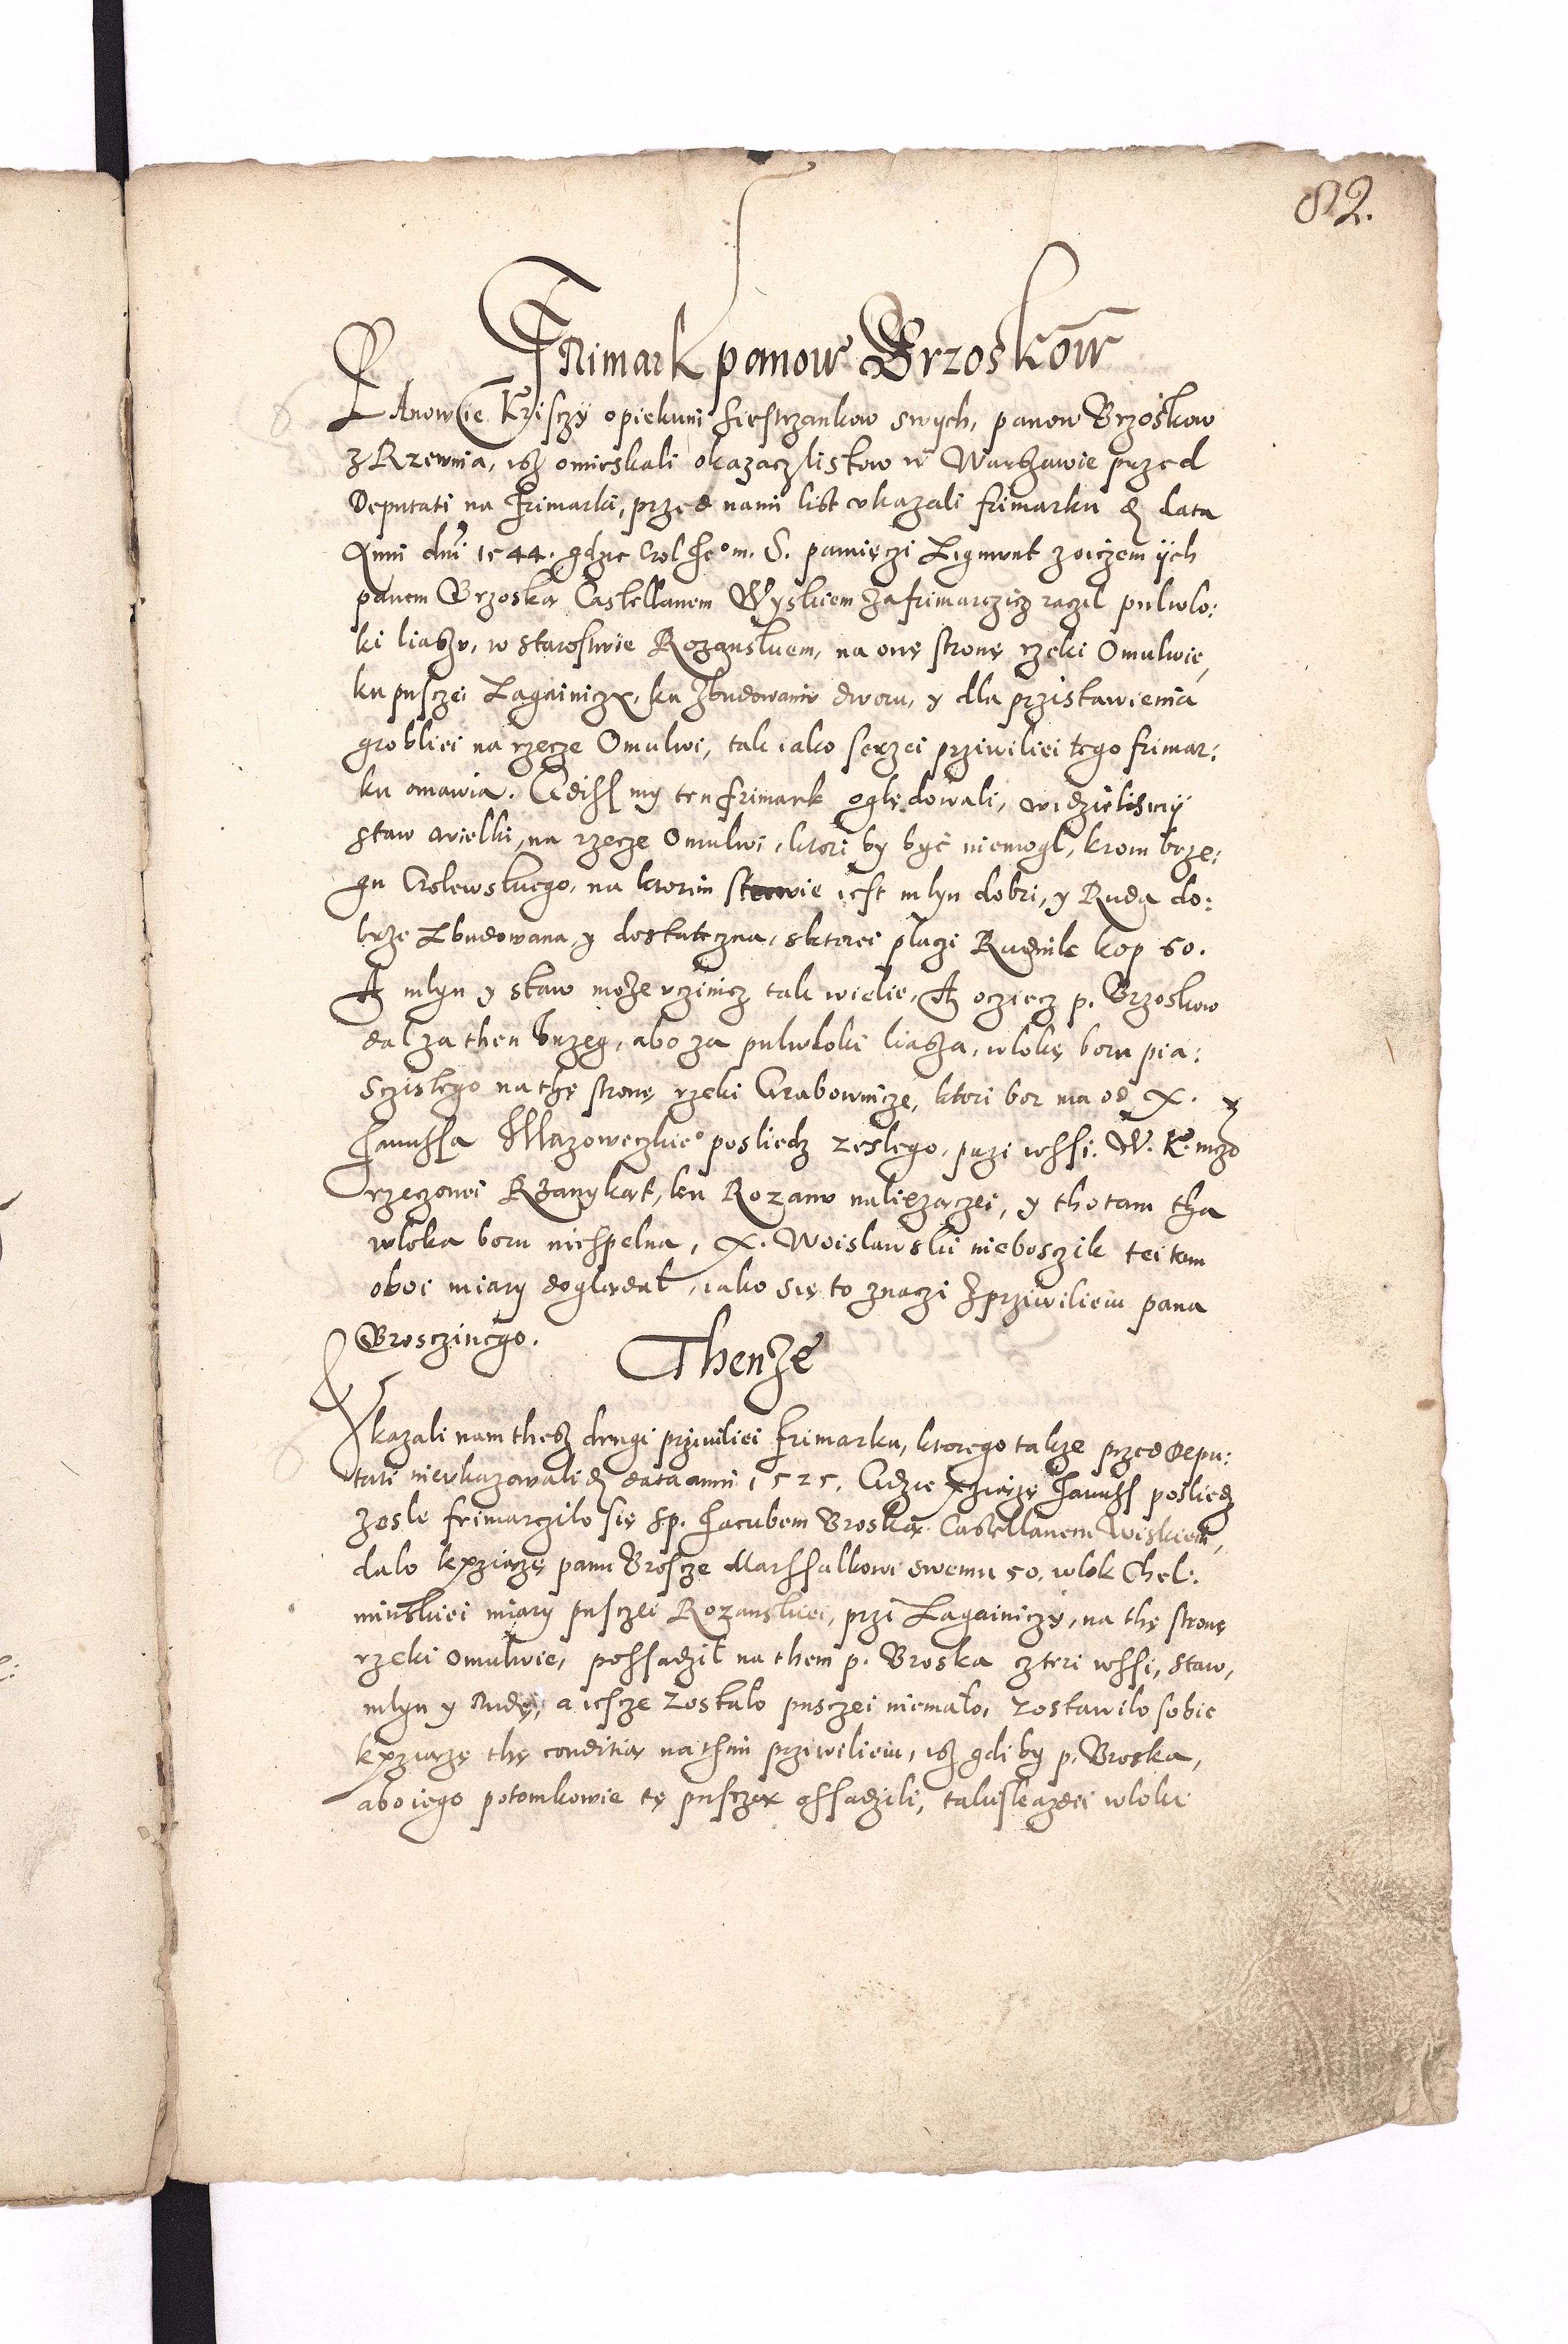 82.
Frimark panow Brzoskow
PAnowie Krisczy opiekuni siestrzankow swych, panow Brzoskow
z Rzewnia, isz omieskali okazacz listow w Warszawie przed
Deputati na frimarki, przed nami list ukazali frimarku de data
Anni dni 1544. gdzie Crol Je° m. S. pamięczi Zigmunt z oiczem ijch
panem Brzoską Castellanem Wyskiem zafrimarczicz raczil pulwlo:
ki liassu, w starostwie Rozanskiem, na onę stronę rzeki Omulwie,
ku pusczei Lagainiczy, ku zbudowaniu dworu, y dla przistawienia
grobliei na rzecze Omulwi, tak iako serzei prziwiliei tego frimar:
ku omawia. Gdissmy ten frimark oględowali, widzielismij
staw wielki, na rzecze Omulwi, ktori by być niemogl, krom brze:
gu Crolewskiego, na ktorim stawie iest mlyn dobri, y Ruda do:
brze zbudowana, y dostateczna, sktorei placzi Rudnik kop 60.
A mlyn y staw może uczinicz tak wielie, A ocziecz p. Brzoskow
dal za then brzeg, abo za pulwloki liassa, wlokę boru pia:
sczistego na thę stronę rzeki Grabownicze, ktori bor ma od X.
Janussa Mazoweczkie° posliedz zeslego, przi wssi. W. K. mczi
rzeczonei Rżanykąt, ku Rozanu należączei, y tho tam tha
wloka boru niespelna, X. Woislawski nieboszik tei tam
oboi miary doględal, iako się to znaczi z prziwilieiu pana
Brosczinego.
Thenże
Ukazali nam thesz drugi prziwiliei frimarku, ktorego takze przed Depu:
tati nieukazowali de data anni 1525. Gdzie xziążę Januss posliedz
zesle frimarczilo się s p. Jacubem Broską Castellanem Wiskiem,
dalo kxziążę panu Broscze Marssalkowi swemu 50. wlok Chel:
minskiei miary pusczei Rozanskiei, przi Lagainiczy, na thę stronę
rzeki Omulwie, possadzil na them p. Broska cztери wssi, staw,
mlyn y Rudę, a iescze zostalo pusczei niemalo, zostawilo sobie
kxziążę thę conditią na thim prziwilieiu, isz gdi by p. Broska,
abo iego potomkowie tę pusczą ossadzili, tak iskazdei wloki